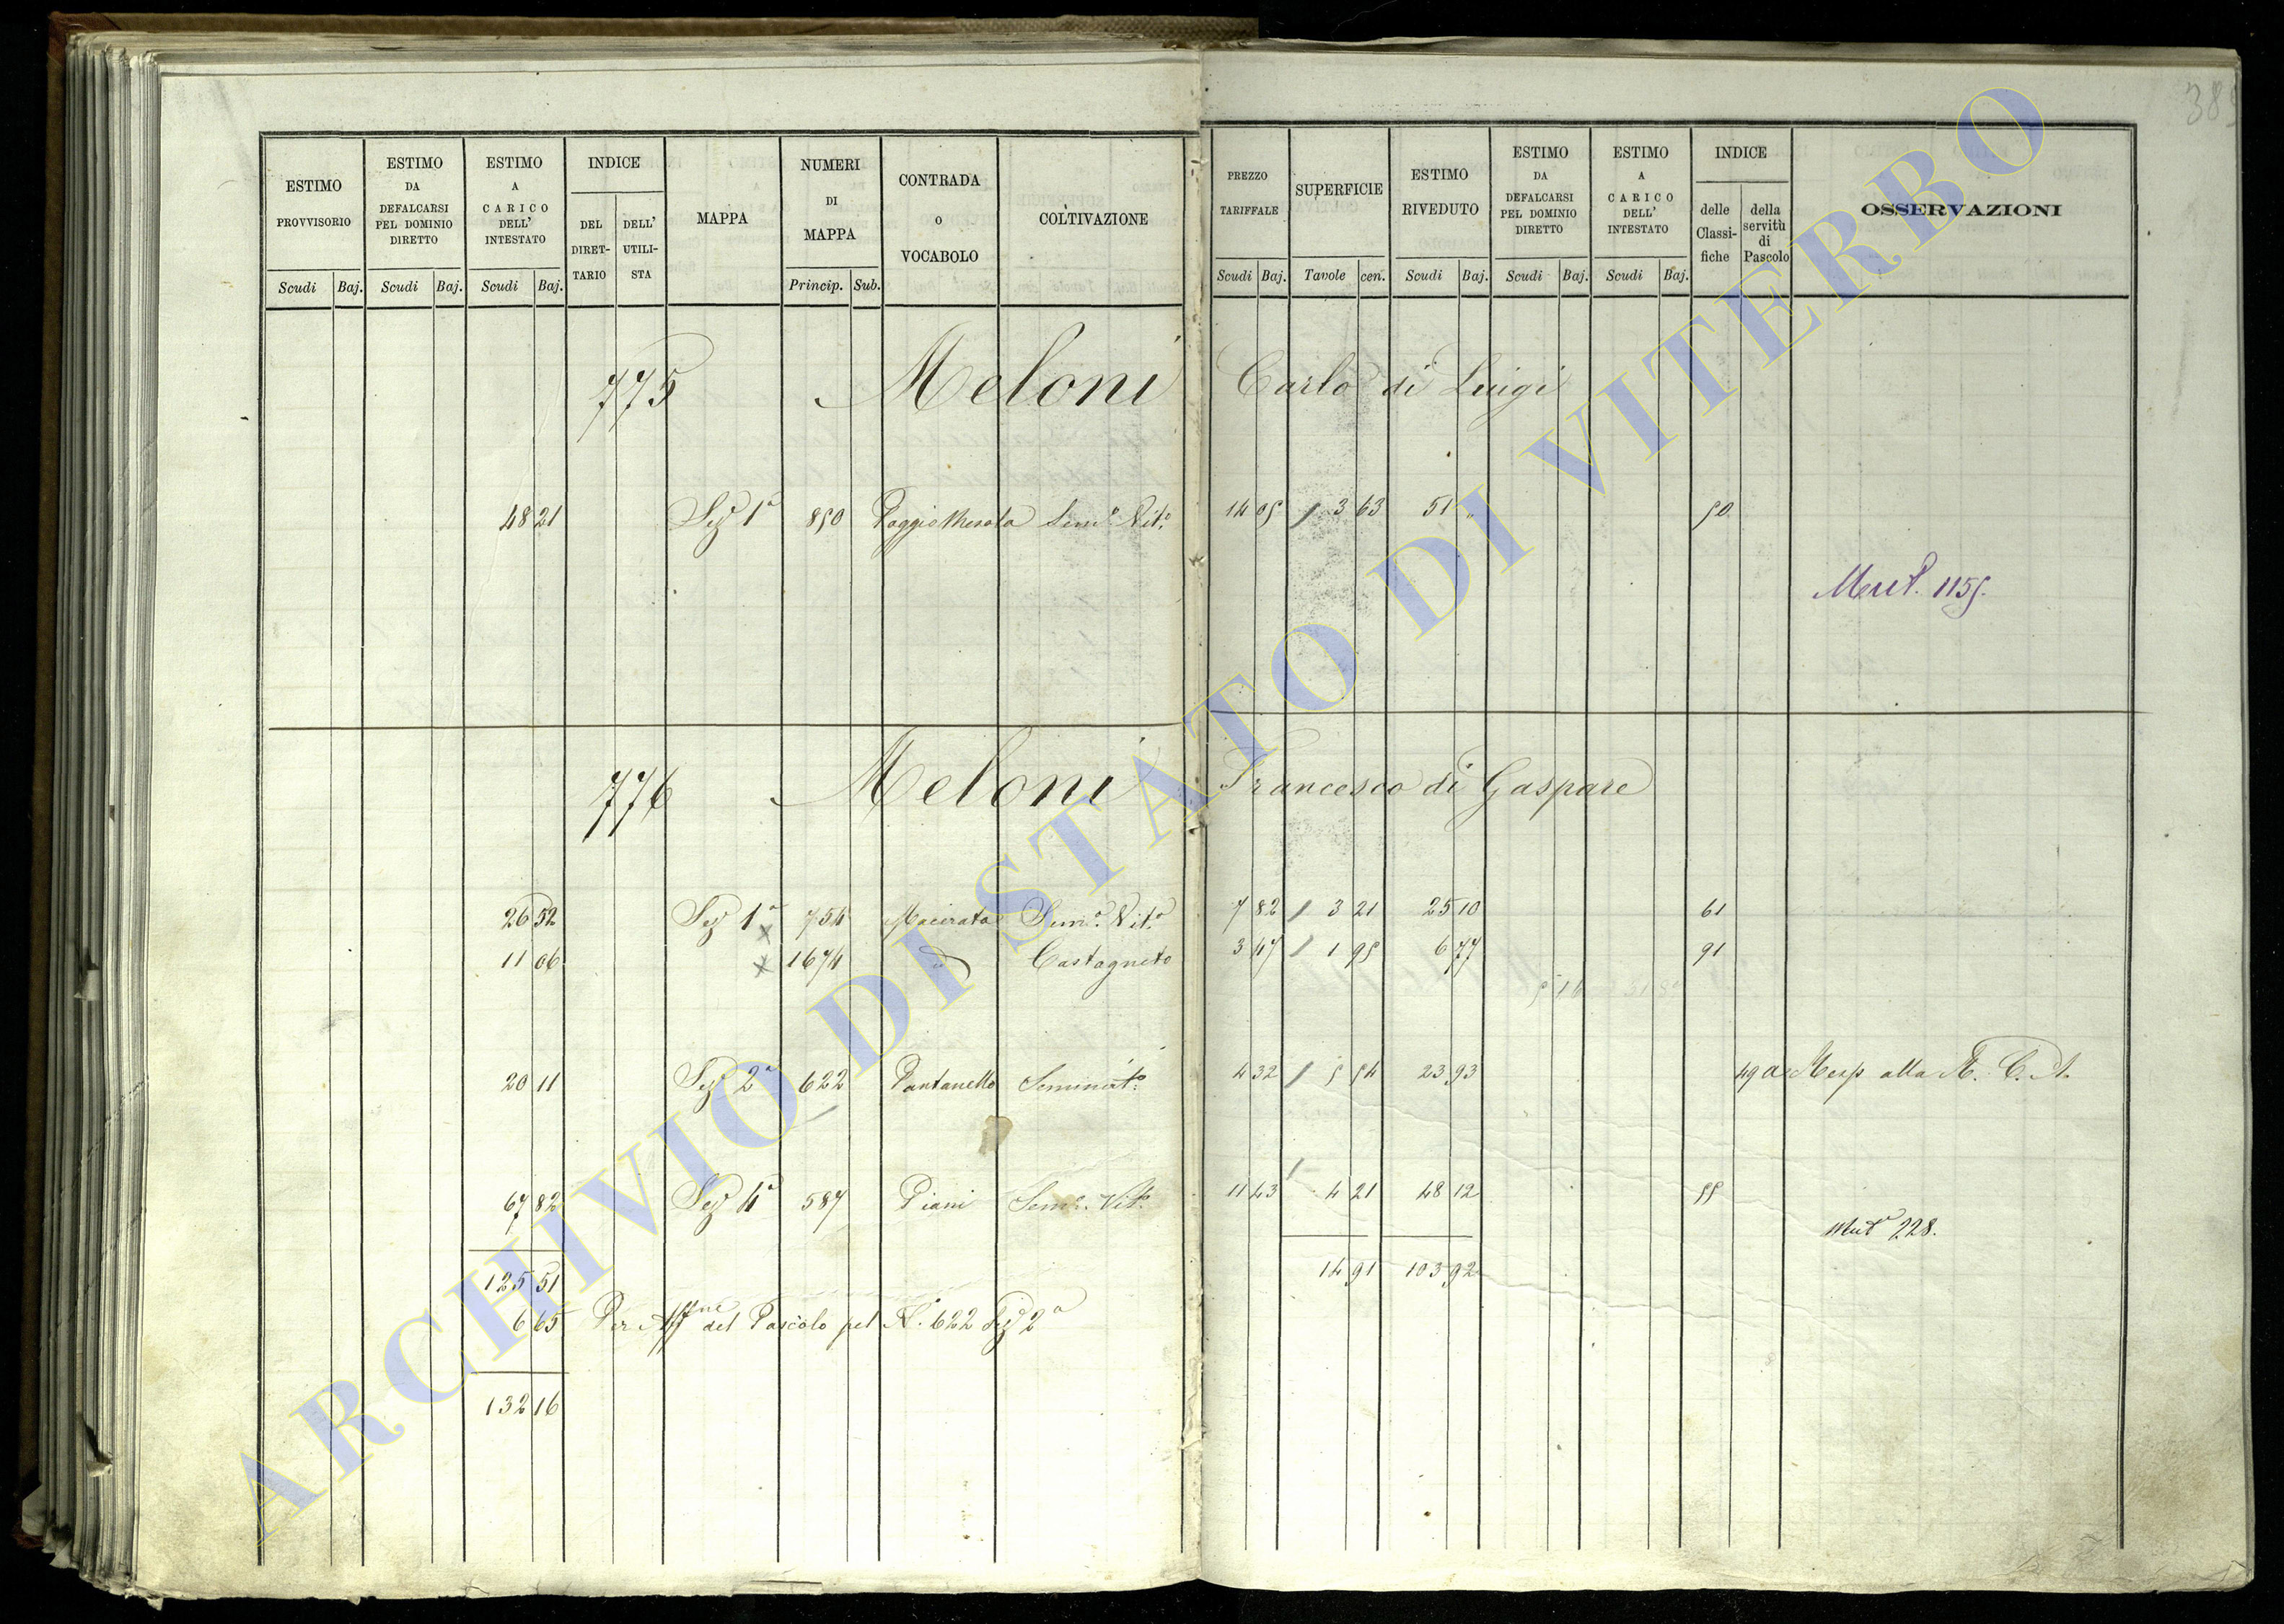 385
ESTIMO PROVVISORIO
ESTIMO DA DEFALCARSI PEL DOMINIO DIRETTO
ESTIMO A CARICO DELL' INTESTATO
INDICE
DEL DIRETTARIO
DELL' UTILISTA
MAPPA
NUMERI DI MAPPA
CONTRADA O VOCABOLO
COLTIVAZIONE
PREZZO TARIFFALE
SUPERFICIE
ESTIMO RIVEDUTO
ESTIMO DA DEFALCARSI PEL DOMINIO DIRETTO
ESTIMO A CARICO DELL' INTESTATO
INDICE
delle Classifiche
della servitù di Pascolo
OSSERVAZIONI
Scudi Baj. Scudi Baj. Scudi Baj. Princip. Sub. Scudi Baj. Tavole cen. Scudi Baj. Scudi Baj. Scudi Baj.
775 Meloni Carlo di Luigi
48 21 Sez 1a 850 Poggio Sem.o Vit.o 14 05 3 63 51 " 50
Mut. 1155.
776 Meloni Francesco di Gaspare
26 52 Sez 1a 754 Macerata Sem.o Vit.o 7 82 3 21 25 10 61
11 06 x 1674 d Castagneto 3 47 1 95 6 77 91
20 11 Sez 2a 622 Pantanello Seminat.o 4 32 5 54 23 93 49 a Resp alla R. C. A.
67 82 Sez 4a 587 Piani Sem.o Vit.o 11 43 4 21 48 12 55
Muta 228.
125 51 14 91 103 92
6 65 Per Affne del Pascolo pel N.o 622 Sez 2a
132 16
ARCHIVIO DI STATO DI VITERBO